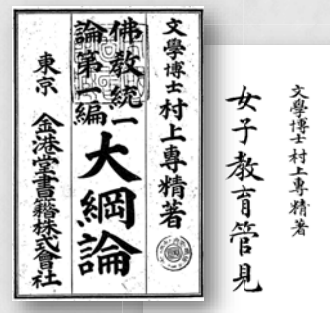 文學博士村上專精著
佛教統一論第一編
大綱論
東京 金港堂書籍株式會社
文學博士村上專精著
女子教育管見